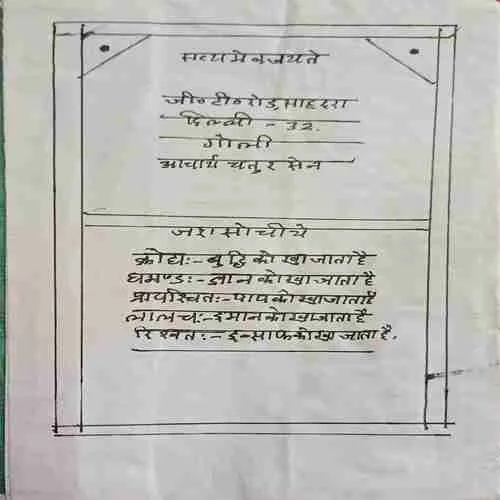 सत्यमेव जयते
जी०टी०रोड, साहदरा
दिल्ली - 32.
गोली
आचार्य चतुर सेन
जरा सोचीये
क्रोध:- बुद्धि को खा जाता है
घमण्ड:- ज्ञान को खा जाता है
प्रायश्चित:- पाप को खा जाता है
लालच:- ईमान को खा जाता है
रिश्वत:- इन्साफ को खा जाता है.